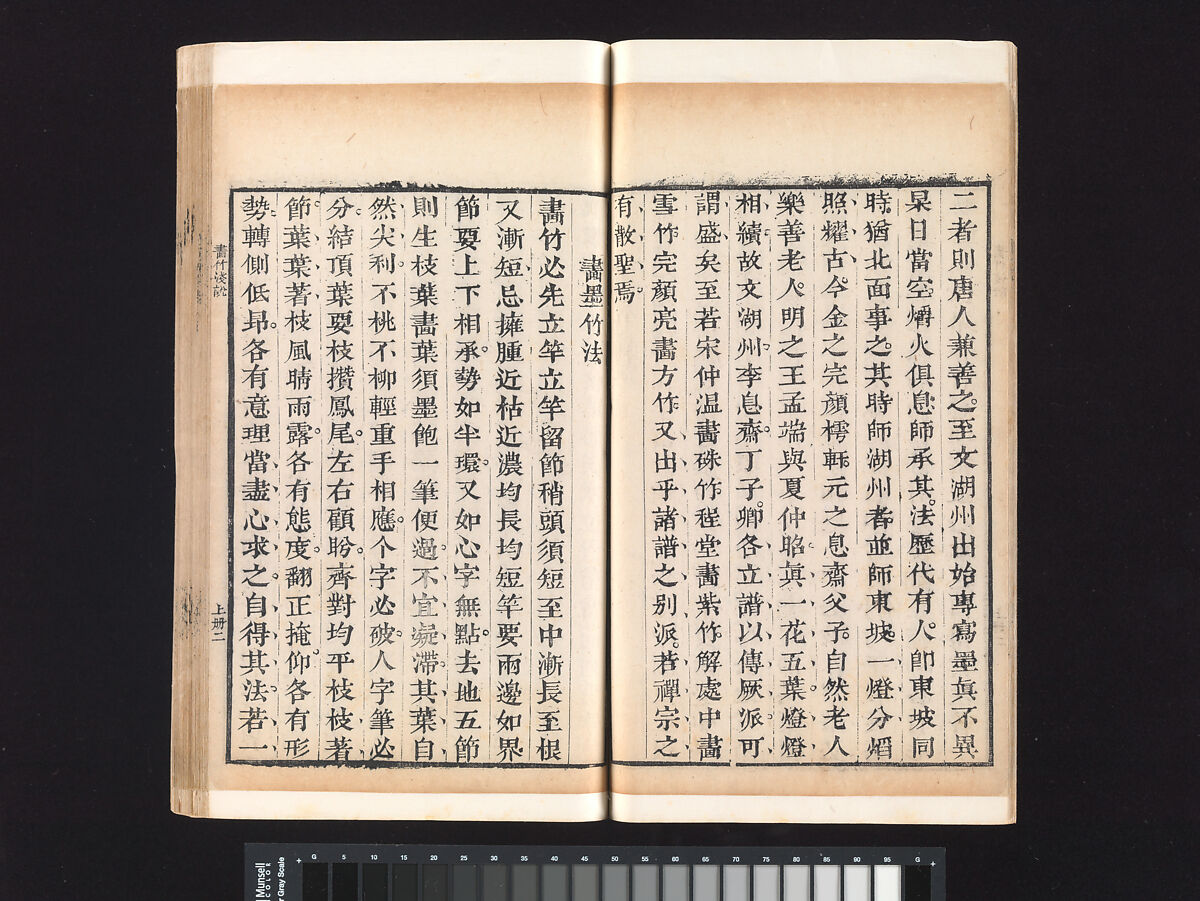 二者則唐人兼善之至文湖州出始專寫墨眞不異
杲日當空爝火俱息師承其法歷代有人卽東坡同
時猶北面事之其時師湖州者並師東坡一燈分熖
照耀古今金之完顏樗軒元之息齋父子自然老人
樂善老人明之王孟端與夏仲昭眞一花五葉燈燈
相續故文湖州李息齋丁子卿各立譜以傳厥派可
謂盛矣至若宋仲温畵硃竹程堂畵紫竹解處中畵
雪竹完顏亮畵方竹又出乎諸譜之别派若禪宗之
有散聖焉
畵墨竹法
畵竹必先立竿立竿留節稍頭須短至中漸長至根
又漸短忌擁腫近枯近濃均長均短竿要兩邊如界
節要上下相承勢如半環又如心字無點去地五節
則生枝葉畵葉須墨飽一筆便過不宜凝滯其葉自
然尖利不桃不柳輕重手相應个字必破人字筆必
分結頂葉要枝攢鳳尾左右顧盼齊對均平枝枝著
節葉葉著枝風晴雨露各有態度翻正掩仰各有形
勢轉側低昂各有意理當盡心求之自得其法若一
畵竹淺說
上册二
Munsell COLOR
Gray Scale
G 5 10 15 20 25 30 35 40 45 50 55 60 65 70 75 80 85 90 95 G